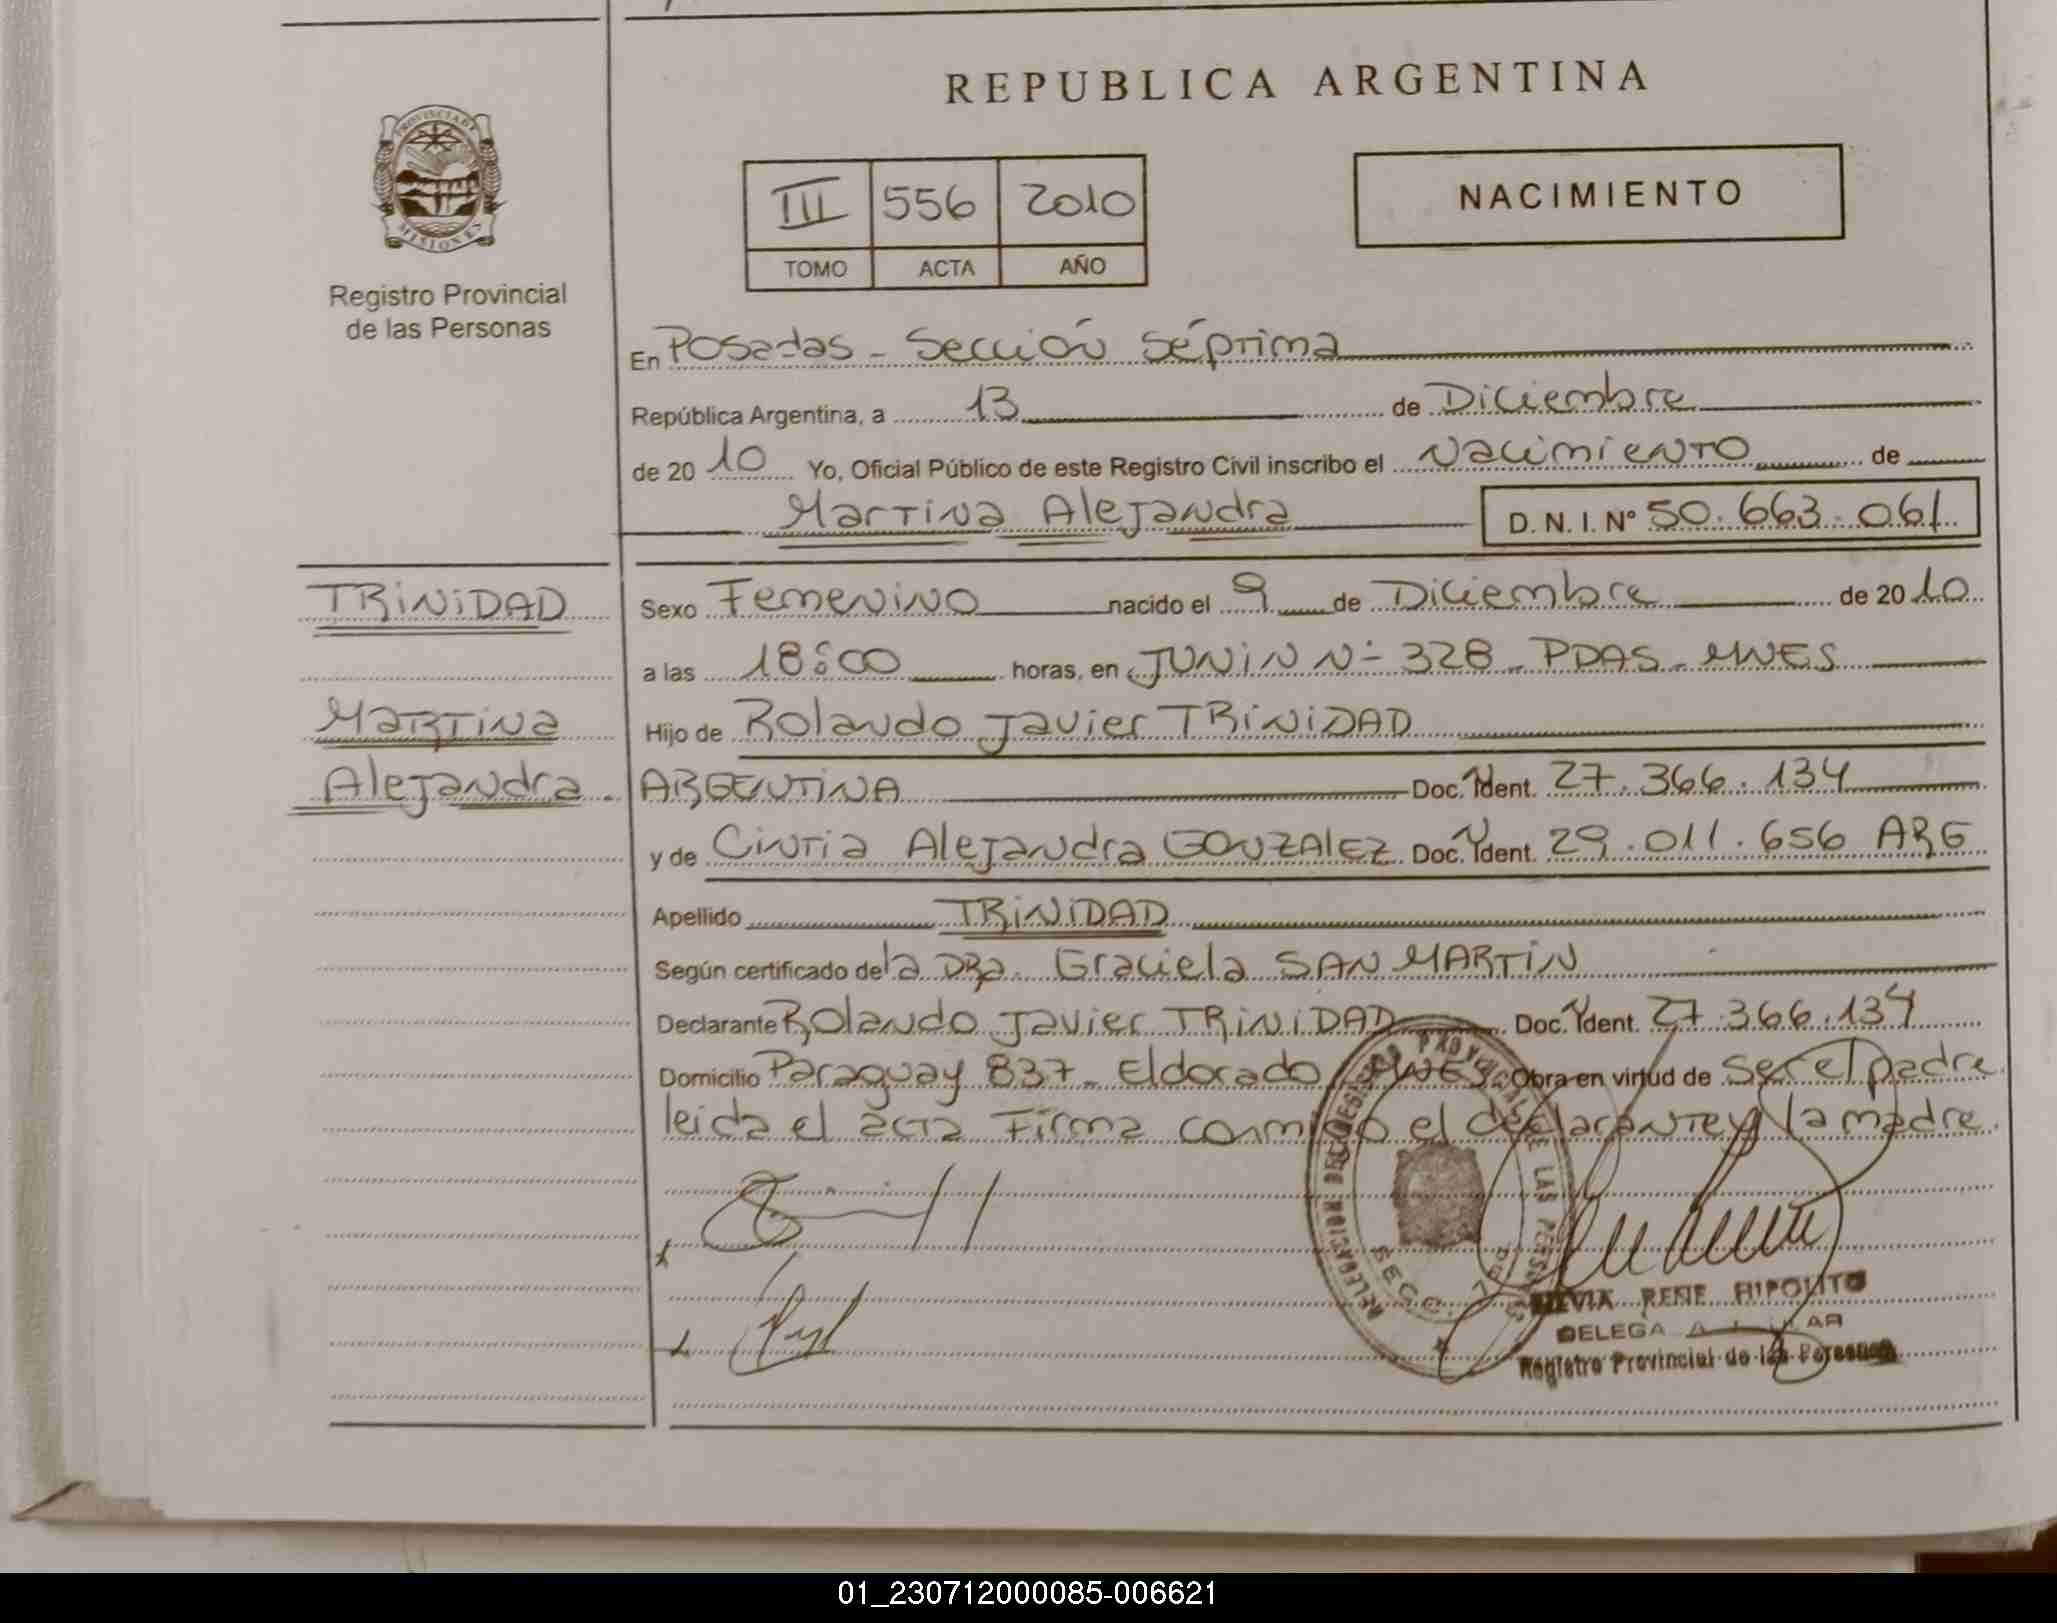 REPUBLICA ARGENTINA
PROVINCIA DE
MISIONES
Registro Provincial
de las Personas
III 556 2010
TOMO ACTA AÑO
NACIMIENTO
En Posadas - Sección Séptima
República Argentina, a 13 de Diciembre
de 20 10 Yo, Oficial Público de este Registro Civil inscribo el Nacimiento de
Martina Alejandra D. N. I. Nº 50.663.061
TRINIDAD
Martina
Alejandra.
Sexo Femenino nacido el 9 de Diciembre de 20 10
a las 18:00 horas, en JUNIN Nº 328 - PDAS - MNES
Hijo de Rolando Javier TRINIDAD
ARGENTINA Doc. Ident. 27.366.134
y de Cintia Alejandra GONZALEZ Doc. Ident. 29.011.656 ARG
Apellido TRINIDAD
Según certificado de la DRa. Graciela SAN MARTIN
Declarante Rolando Javier TRINIDAD Doc. Ident. 27.366.134
Domicilio Paraguay 837 - Eldorado MNES. Obra en virtud de ser el padre
leida el acta Firma conmigo el declarante y la madre.
DELEGACION DEL REGISTRO PROVINCIAL DE LAS PERSONAS
SECC. 7
RENE HIPOLITO
Registro Provincial de las Personas
01_230712000085-006621